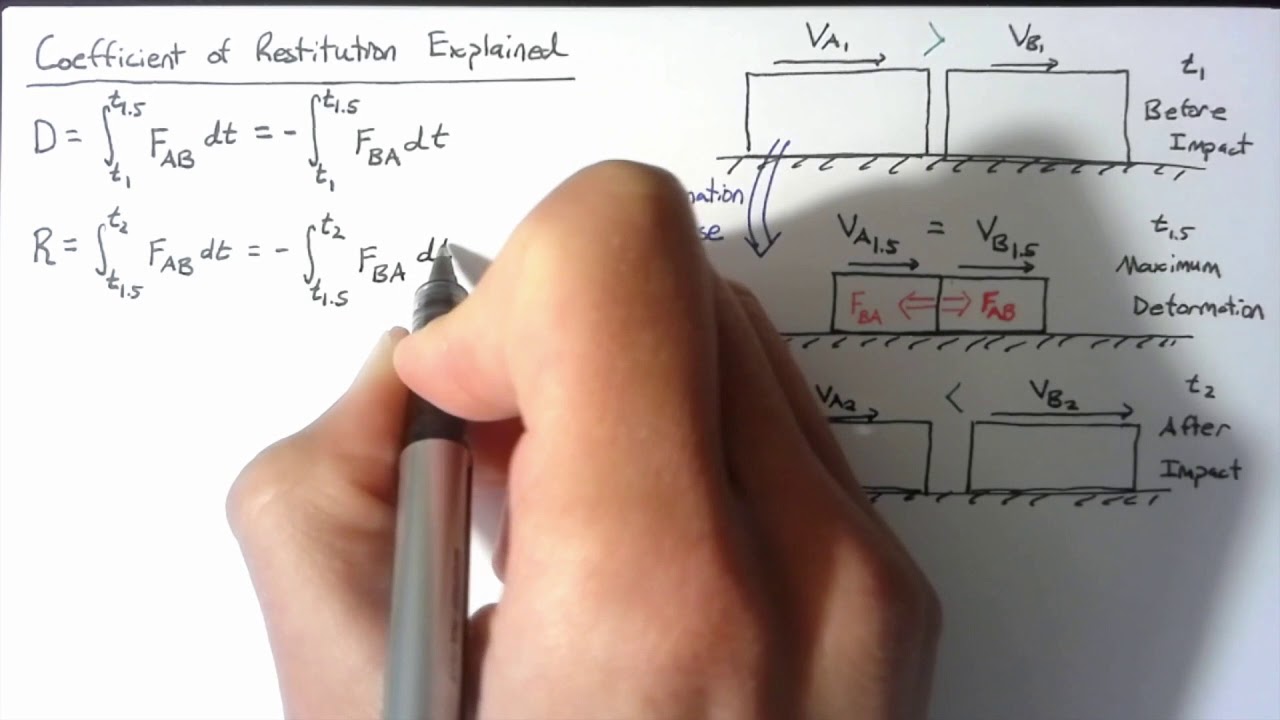 Coefficient of Restitution Explained
D = ∫_{t_1}^{t_{1.5}} F_{AB} dt = - ∫_{t_1}^{t_{1.5}} F_{BA} dt
R = ∫_{t_{1.5}}^{t_2} F_{AB} dt = - ∫_{t_{1.5}}^{t_2} F_{BA} d
V_{A_1} > V_{B_1}
t_1
Before
Impact
V_{A_{1.5}} = V_{B_{1.5}}
t_{1.5}
Maximum
Deformation
F_{BA} ⇐ ⇒ F_{AB}
V_{A2} < V_{B2}
t_2
After
Impact